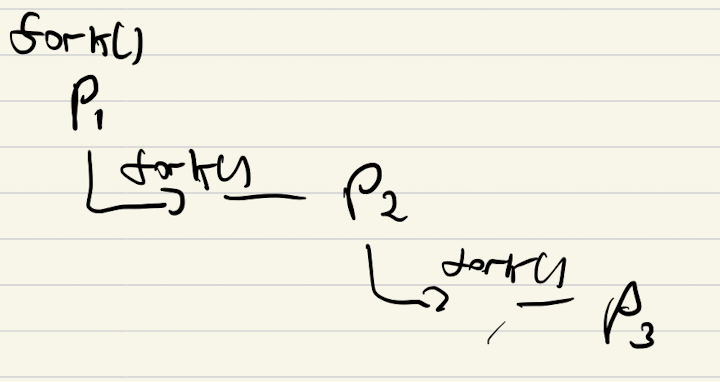 fork()
P1
fork()
P2
fork()
P3